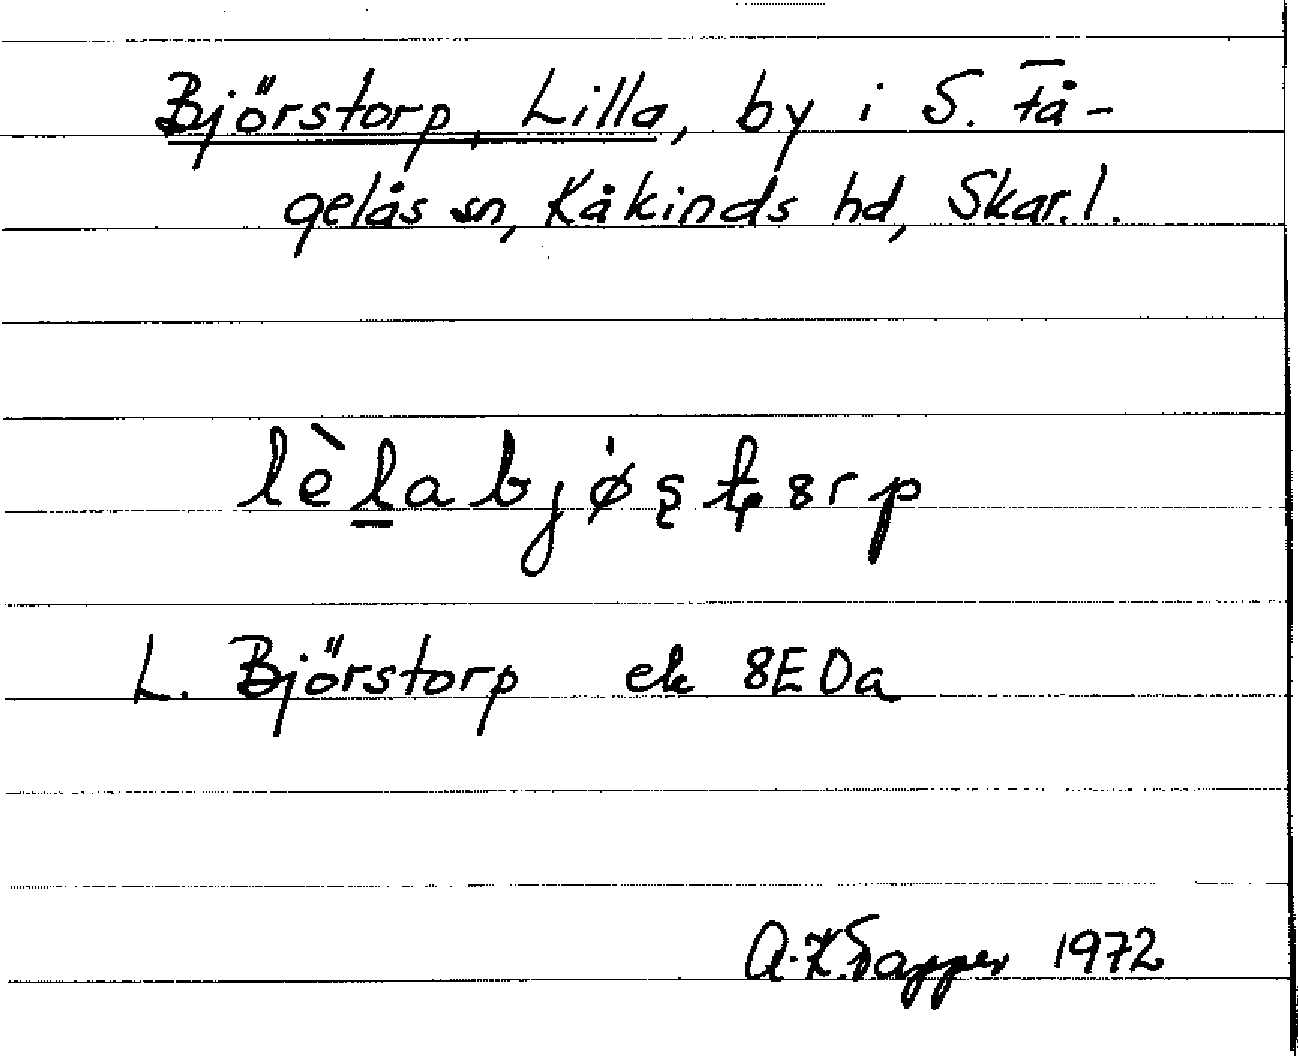 Björstorp, Lilla, by i S. Få-
gelås sn, Kåkinds hd, Skar.l.
lèḻa bjǿʂʈ8rp
L. Björstorp ek 8E0a